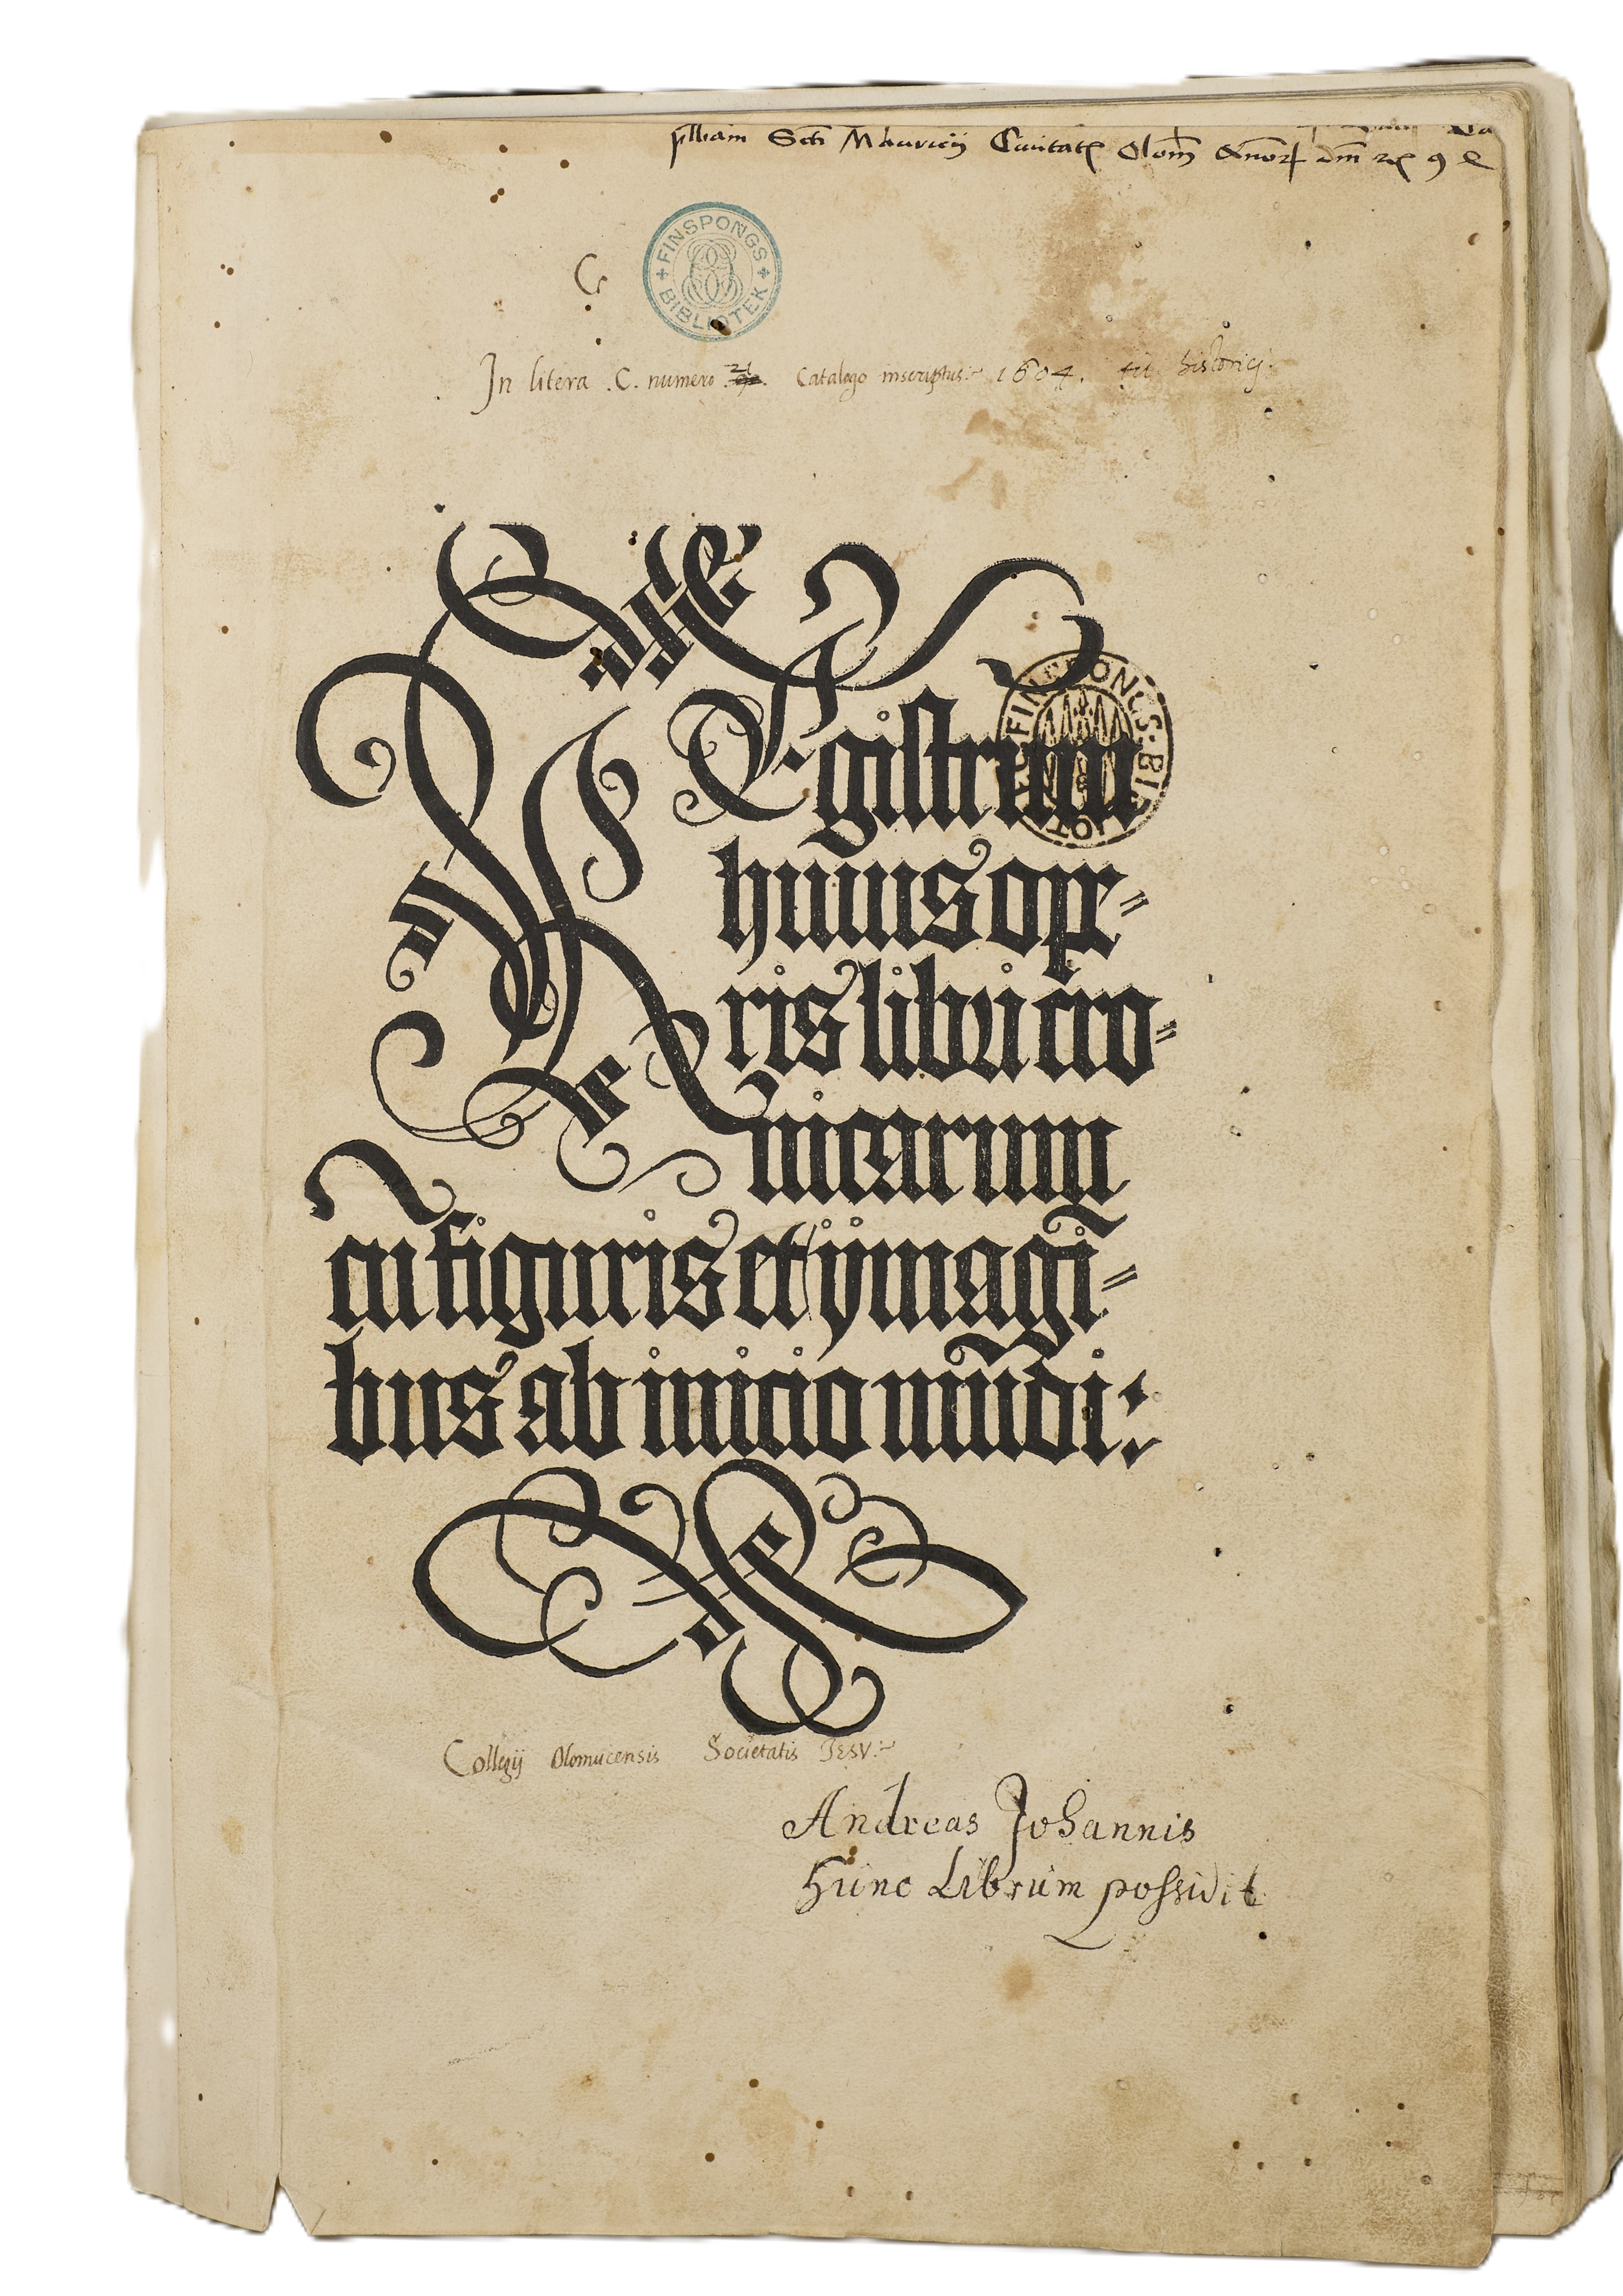 Scti Mauricij Ciuitatꝭ Olom̄
FINSPONGS BIBLIOTEK
In litera .C. numero 21 Catalogo inscriptus 1604. tit historicj.
REgistrum
huius ope-
ris libri cro-
nicarum
cū figuris et ymagī-
bus ab inicio mūdi:
FINSPONGS BI
Collegij Olomucensis Societatis IESV
Andreas Johannis
Hunc Librum possidit